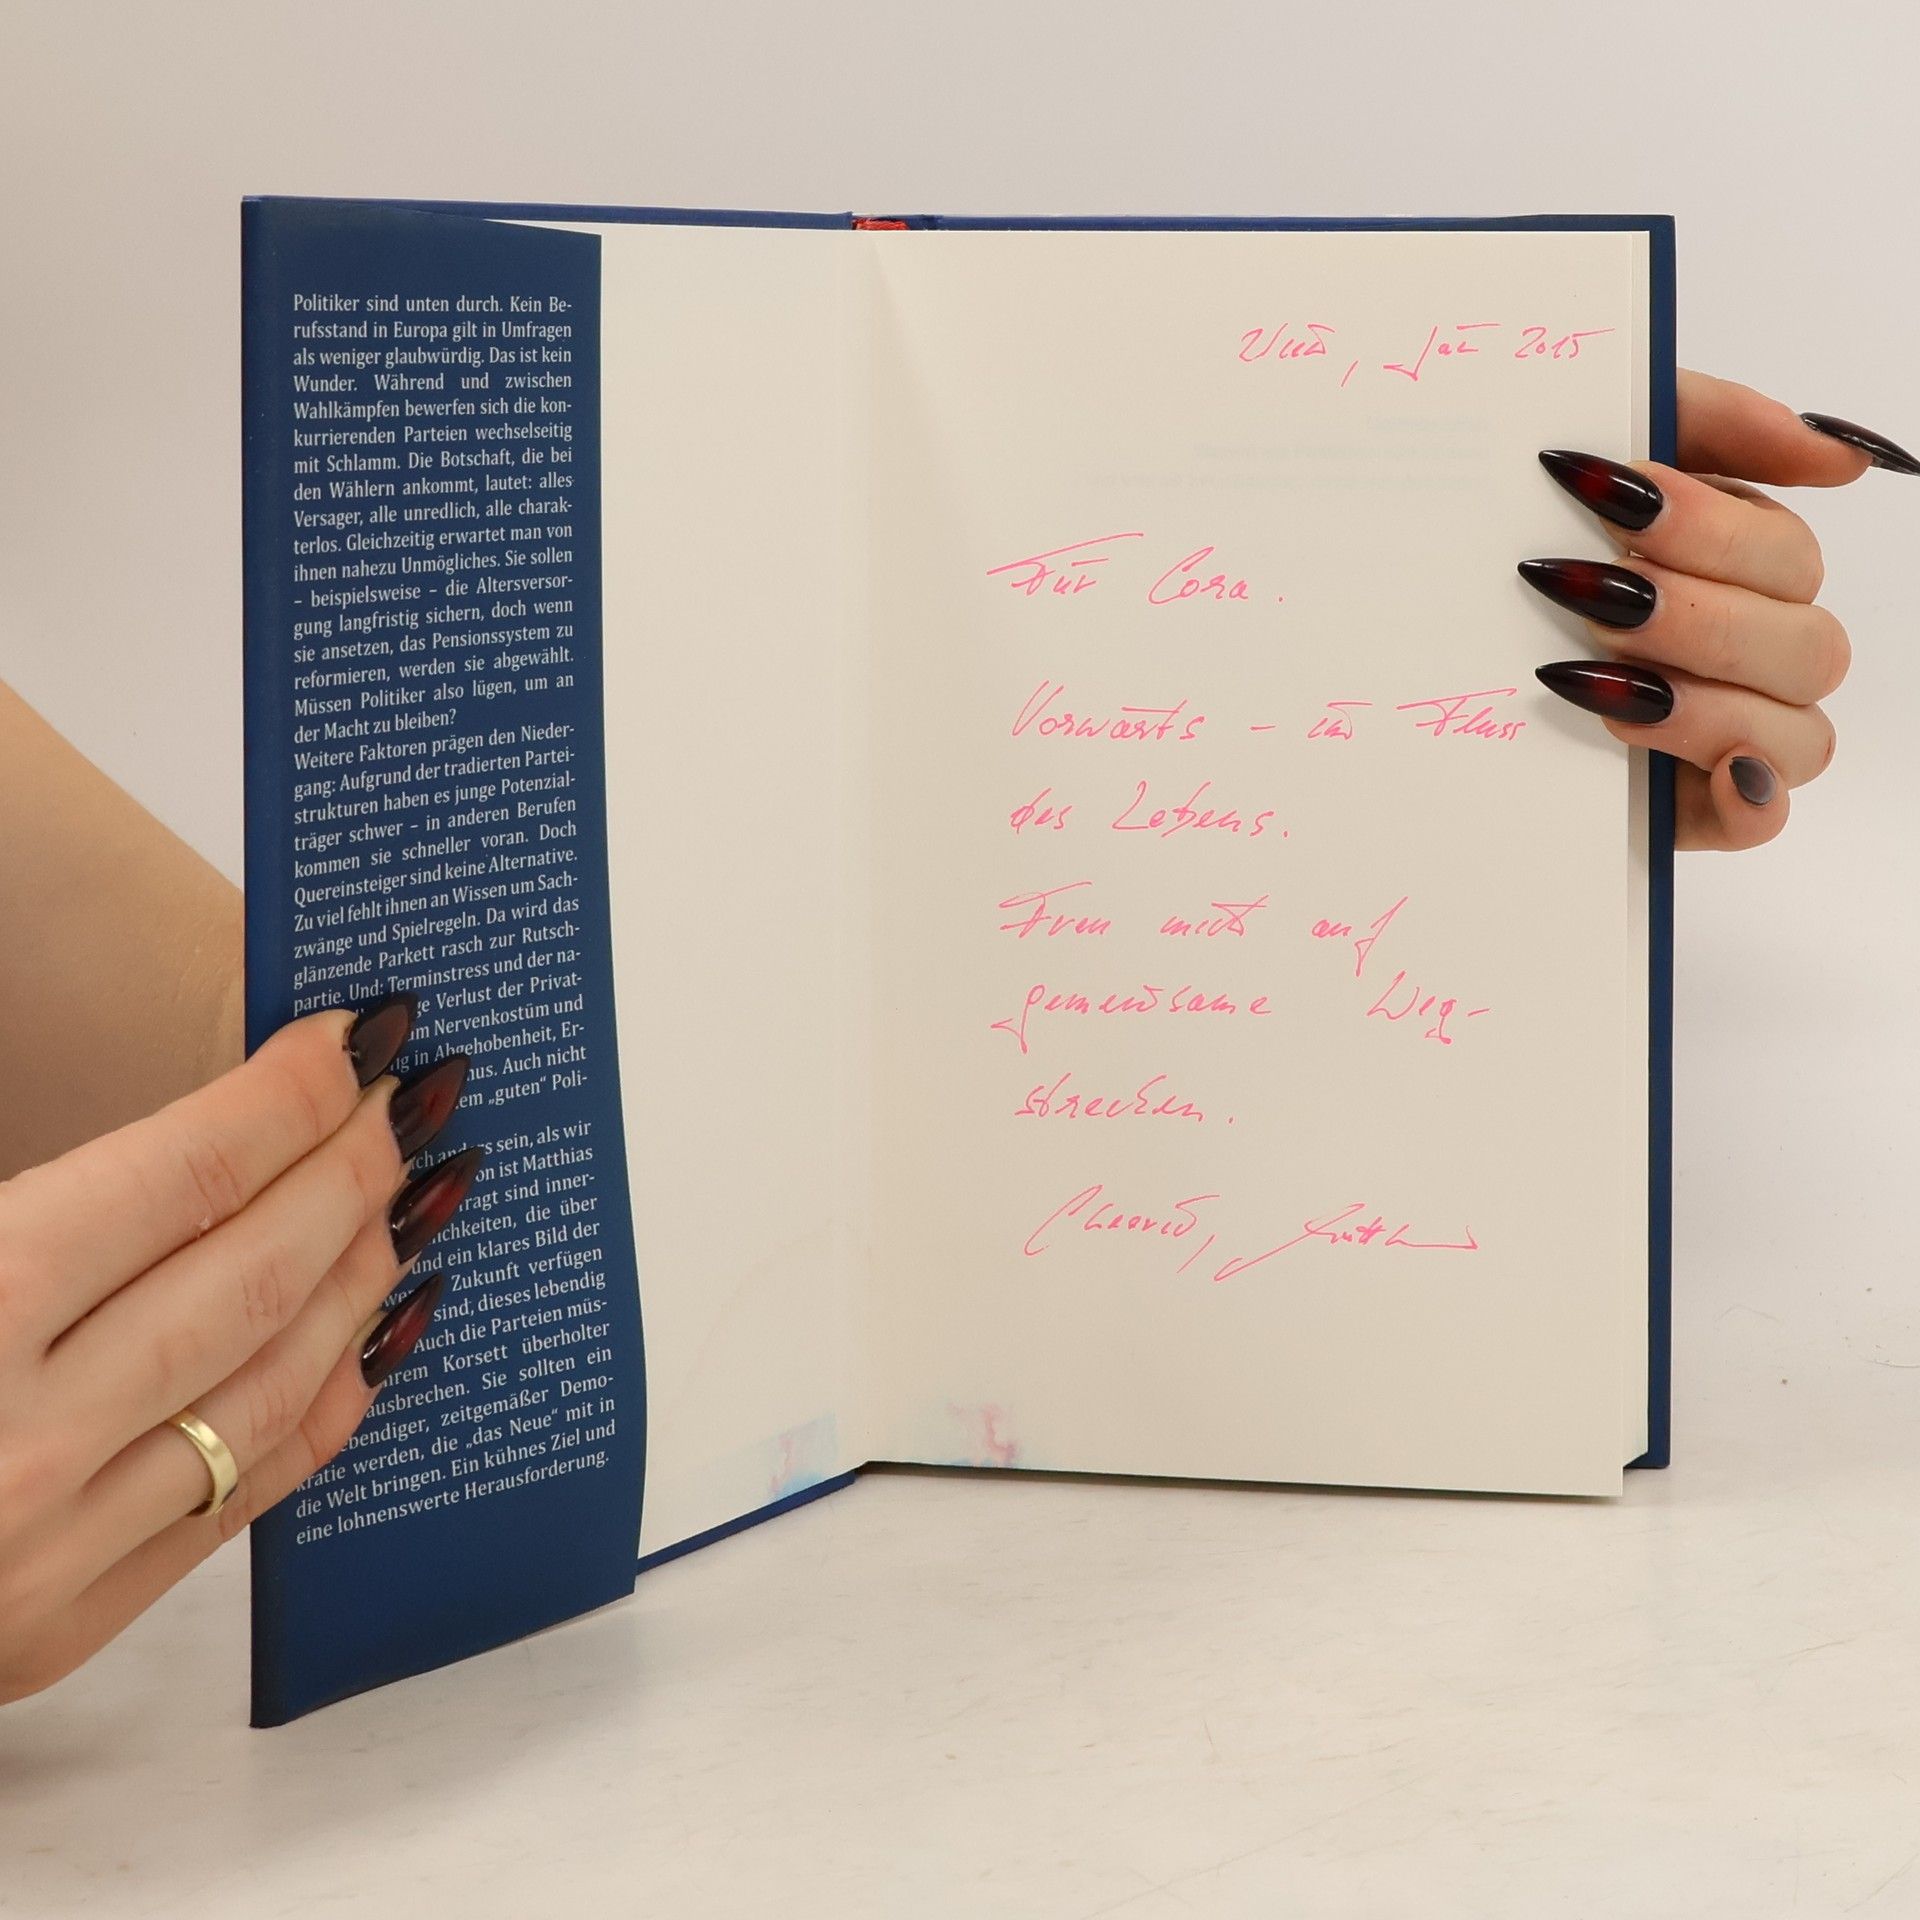 Politiker sind unten durch. Kein Be-
rufsstand in Europa gilt in Umfragen
als weniger glaubwürdig. Das ist kein
Wunder. Während und zwischen
Wahlkämpfen bewerfen sich die kon-
kurrierenden Parteien wechselseitig
mit Schlamm. Die Botschaft, die bei
den Wählern ankommt, lautet: alles
Versager, alle unredlich, alle charak-
terlos. Gleichzeitig erwartet man von
ihnen nahezu Unmögliches. Sie sollen
– beispielsweise – die Altersversor-
gung langfristig sichern, doch wenn
sie ansetzen, das Pensionssystem zu
reformieren, werden sie abgewählt.
Müssen Politiker also lügen, um an
der Macht zu bleiben?
Weitere Faktoren prägen den Nieder-
gang: Aufgrund der tradierten Partei-
strukturen haben es junge Potenzial-
träger schwer – in anderen Berufen
kommen sie schneller voran. Doch
Quereinsteiger sind keine Alternative.
Zu viel fehlt ihnen an Wissen um Sach-
zwänge und Spielregeln. Da wird das
glänzende Parkett rasch zur Rutsch-
partie. Und: Terminstress und der na-
ge Verlust der Privat-
am Nervenkostüm und
in Abgehobenheit, Er-
us. Auch nicht
em „guten“ Poli-
sein, als wir
on ist Matthias
ragt sind inner-
ichkeiten, die über
und ein klares Bild der
Zukunft verfügen
sind, dieses lebendig
Auch die Parteien müs-
hrem Korsett überholter
ausbrechen. Sie sollten ein
bendiger, zeitgemäßer Demo-
kratie werden, die „das Neue“ mit in
die Welt bringen. Ein kühnes Ziel und
eine lohnenswerte Herausforderung.
Jan 2015
Für Cora.
Vorwärts – im Fluss
des Lebens.
Freu mich auf
gemeinsame Weg-
strecken.